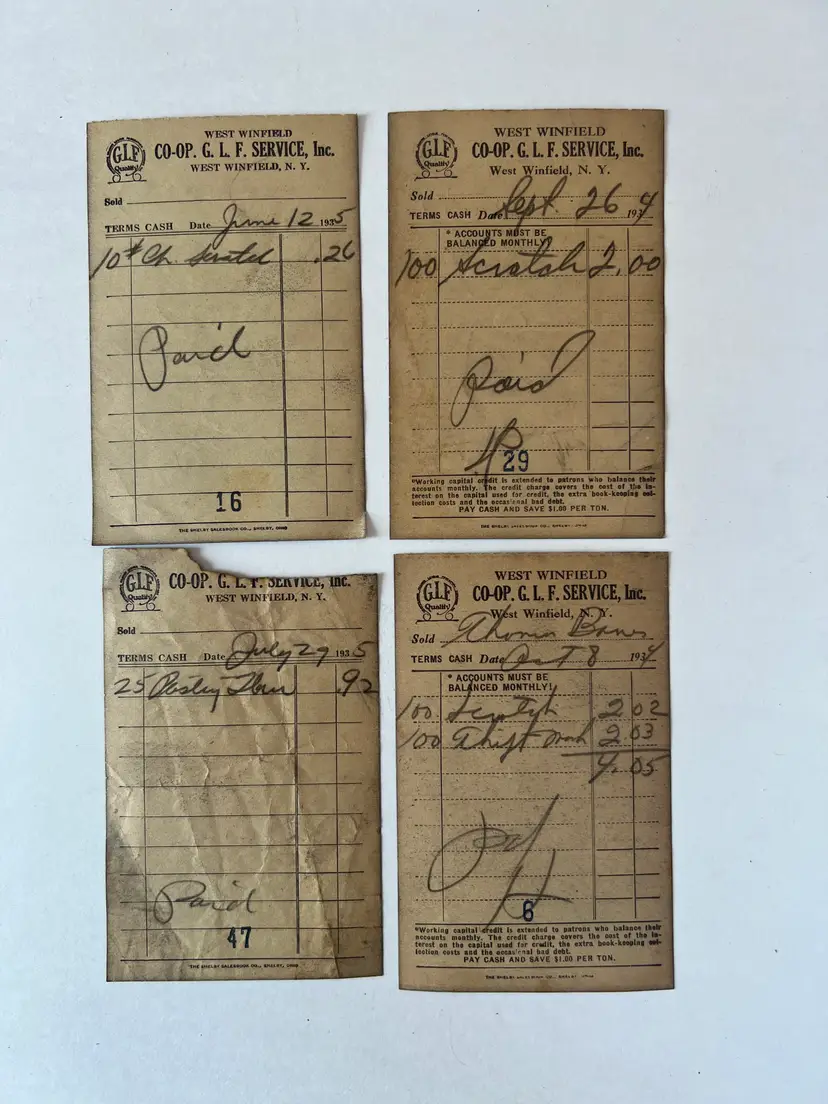 WEST WINFIELD
GLF
Quality
CO-OP. G. L. F. SERVICE, Inc.
WEST WINFIELD, N. Y.
Sold
TERMS CASH Date June 12 1935
10# Ch. Scratch .26
Paid
16
THE SHELBY SALESBOOK CO., SHELBY, OHIO
WEST WINFIELD
GLF
Quality
CO-OP. G. L. F. SERVICE, Inc.
West Winfield, N. Y.
Sold
TERMS CASH Date Sept. 26 1934
* ACCOUNTS MUST BE
BALANCED MONTHLY!
100 Scratch 2.00
Paid
29
*Working capital credit is extended to patrons who balance their
accounts monthly. The credit charge covers the cost of the in-
terest on the capital used for credit, the extra book-keeping col-
lection costs and the occasional bad debt.
PAY CASH AND SAVE $1.00 PER TON.
THE SHELBY SALESBOOK CO., SHELBY, OHIO
GLF
Quality
CO-OP. G. L. F. SERVICE, Inc.
WEST WINFIELD, N. Y.
Sold
TERMS CASH Date July 29 1935
25 .92
Paid
47
THE SHELBY SALESBOOK CO., SHELBY, OHIO
WEST WINFIELD
GLF
Quality
CO-OP. G. L. F. SERVICE, Inc.
West Winfield, N. Y.
Sold Thomas
TERMS CASH Date Oct 8 1934
* ACCOUNTS MUST BE
BALANCED MONTHLY!
100 Scratch 2 02
100 Thift Mash 2 03
4.05
Pd
6
*Working capital credit is extended to patrons who balance their
accounts monthly. The credit charge covers the cost of the in-
terest on the capital used for credit, the extra book-keeping col-
lection costs and the occasional bad debt.
PAY CASH AND SAVE $1.00 PER TON.
THE SHELBY SALESBOOK CO., SHELBY, OHIO